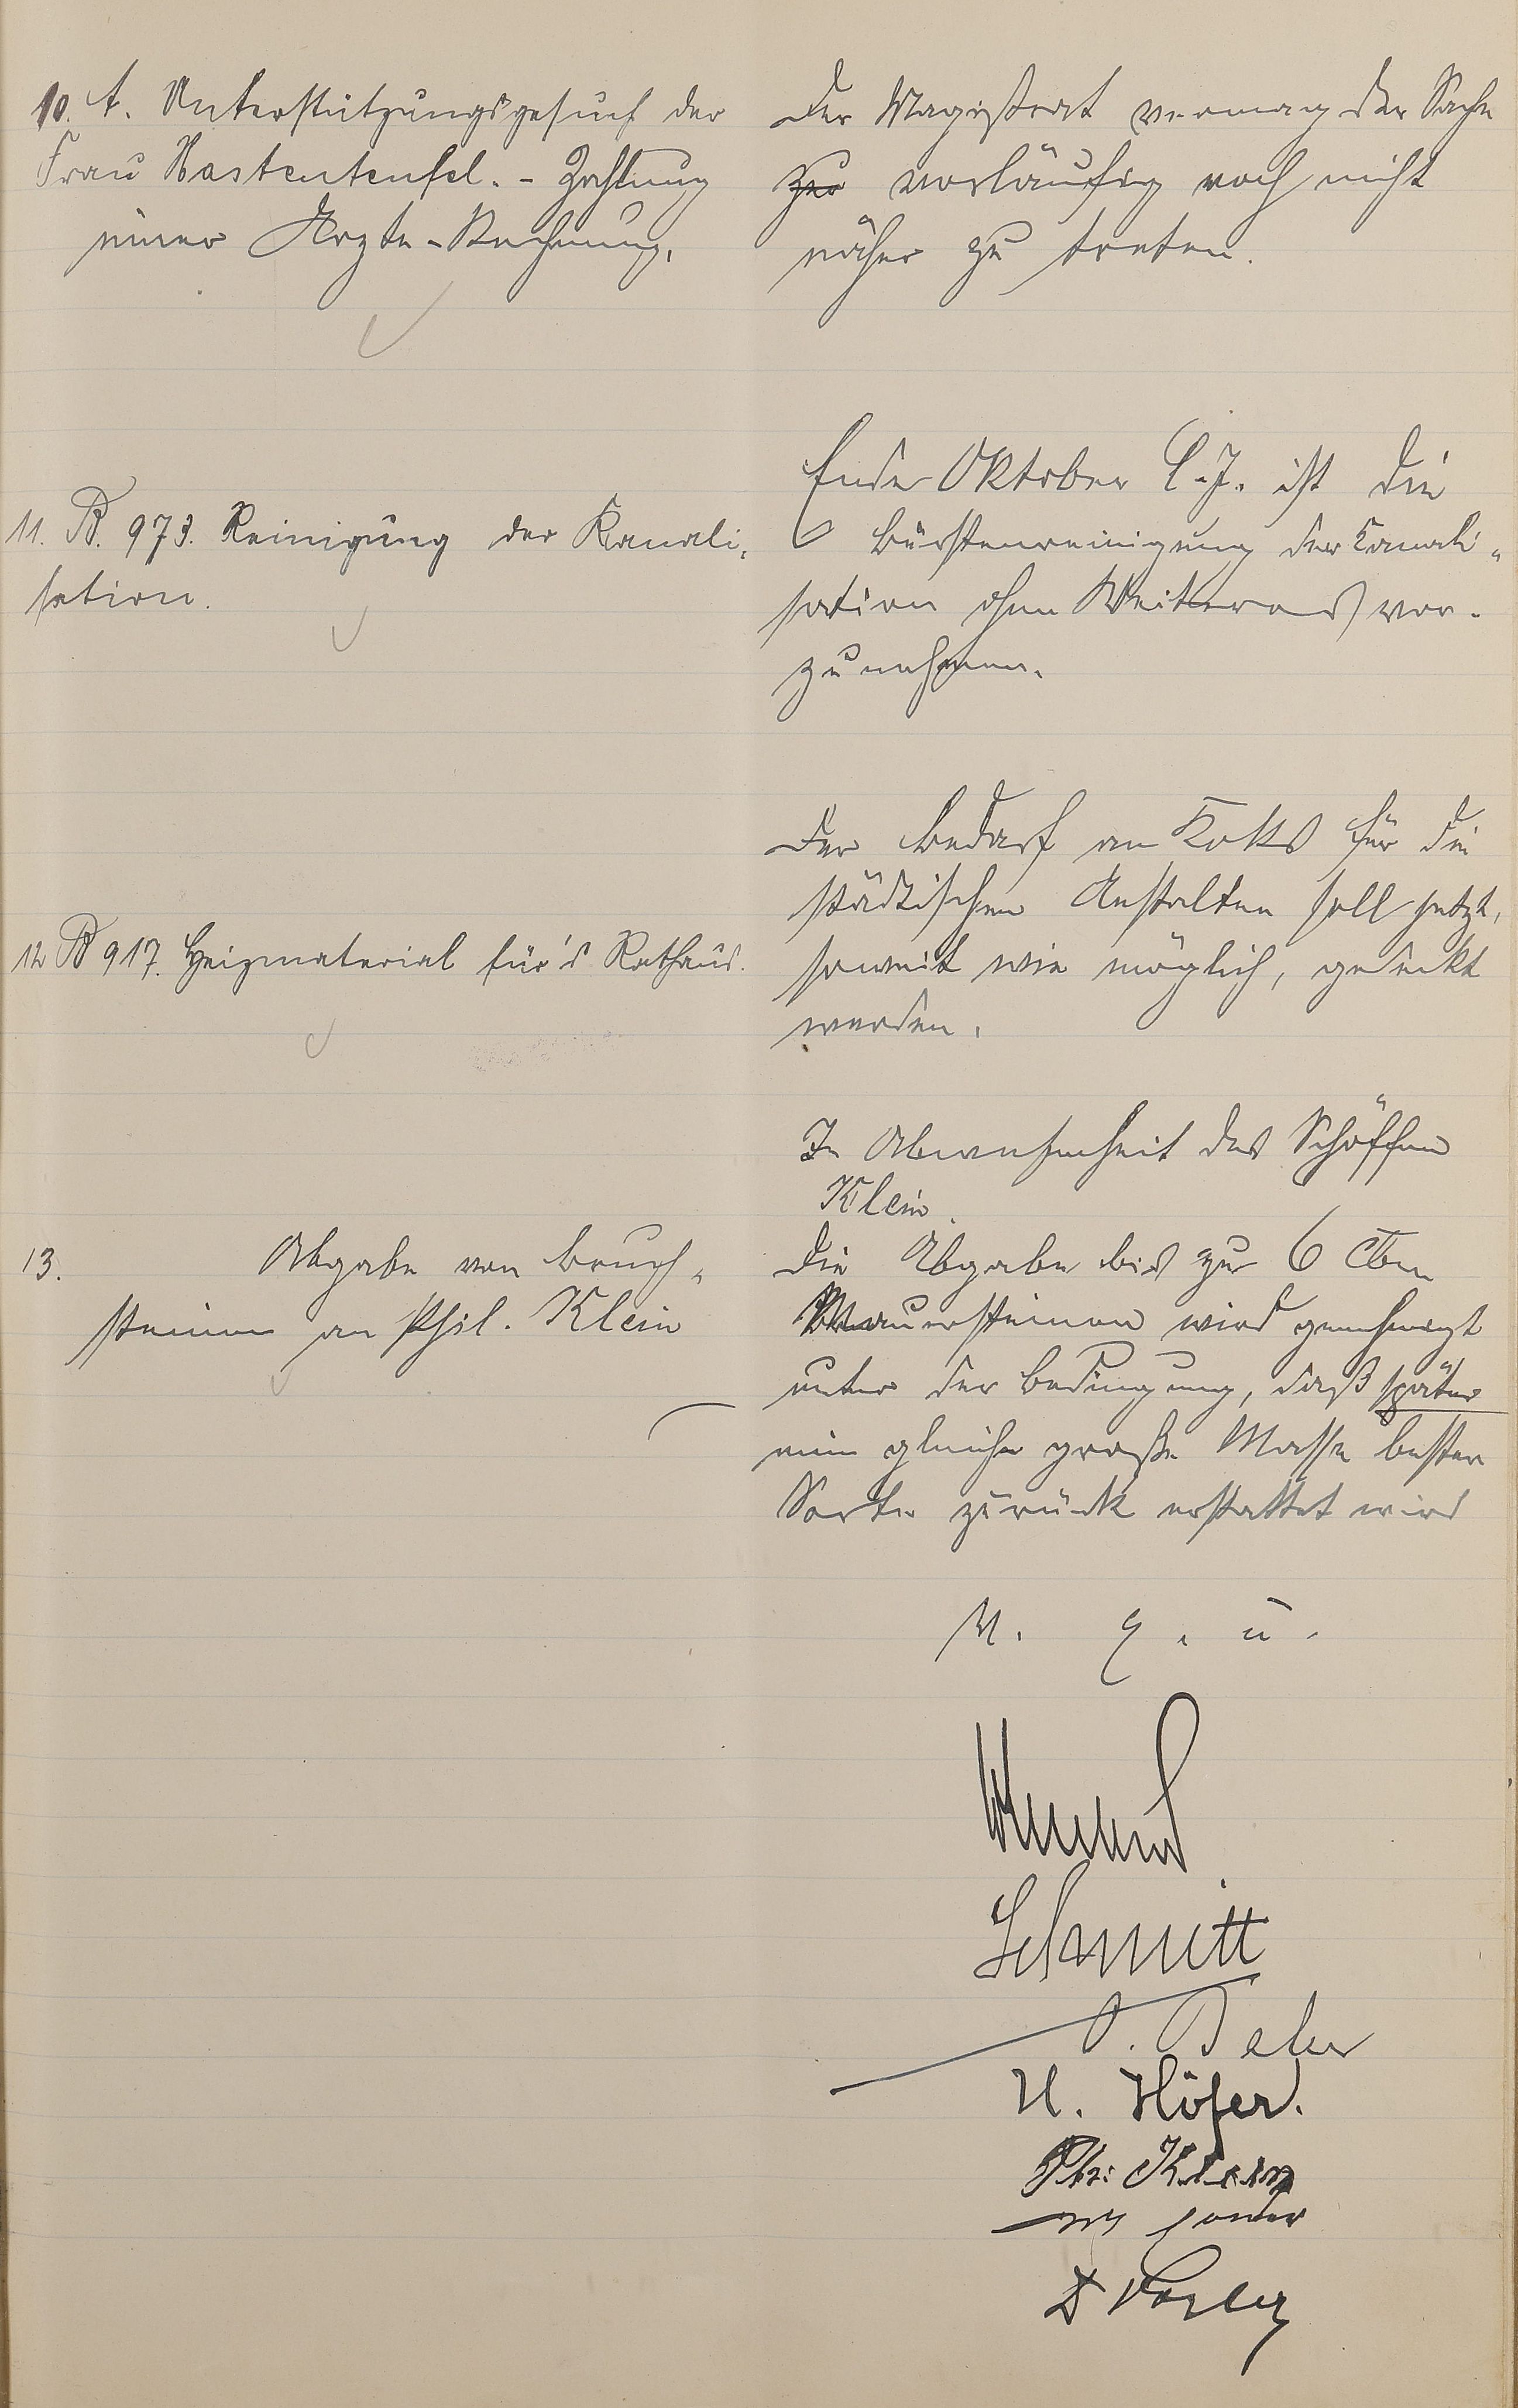 10. A. Unterstützungsgesuch der
Frau Wastenteufel. - Zahlung
einer Arzte-Rechnung.
Der Magistrat vermag der Sache
zur vorläufig noch nicht
näher zu treten.
11. B. 973. Reinigung der Kanali-
sation.
Ende Oktober l. J. ist die
Bürstenreinigung der Kanali-
sation ohne Weiteres vor-
zunehmen.
12 B 917. Heizmaterial für's Rathaus.
Der Bedarf an Koks für die
städtischen Anstalten soll jetzt,
soweit wie möglich, gedeckt
werden.
13. Abgabe von Bruch-
steinen an Phil. Klein
In Abwesenheit des Schöffen
Klein.
Die Abgabe bis zu 6 cbm
Mauersteinen wird genehmigt
unter der Bedingung, daß später
eine gleiche große Masse bester
Sorte zurück erstattet wird
V. g. u.
Schmitt
H. Höfer.
Ph: Klein